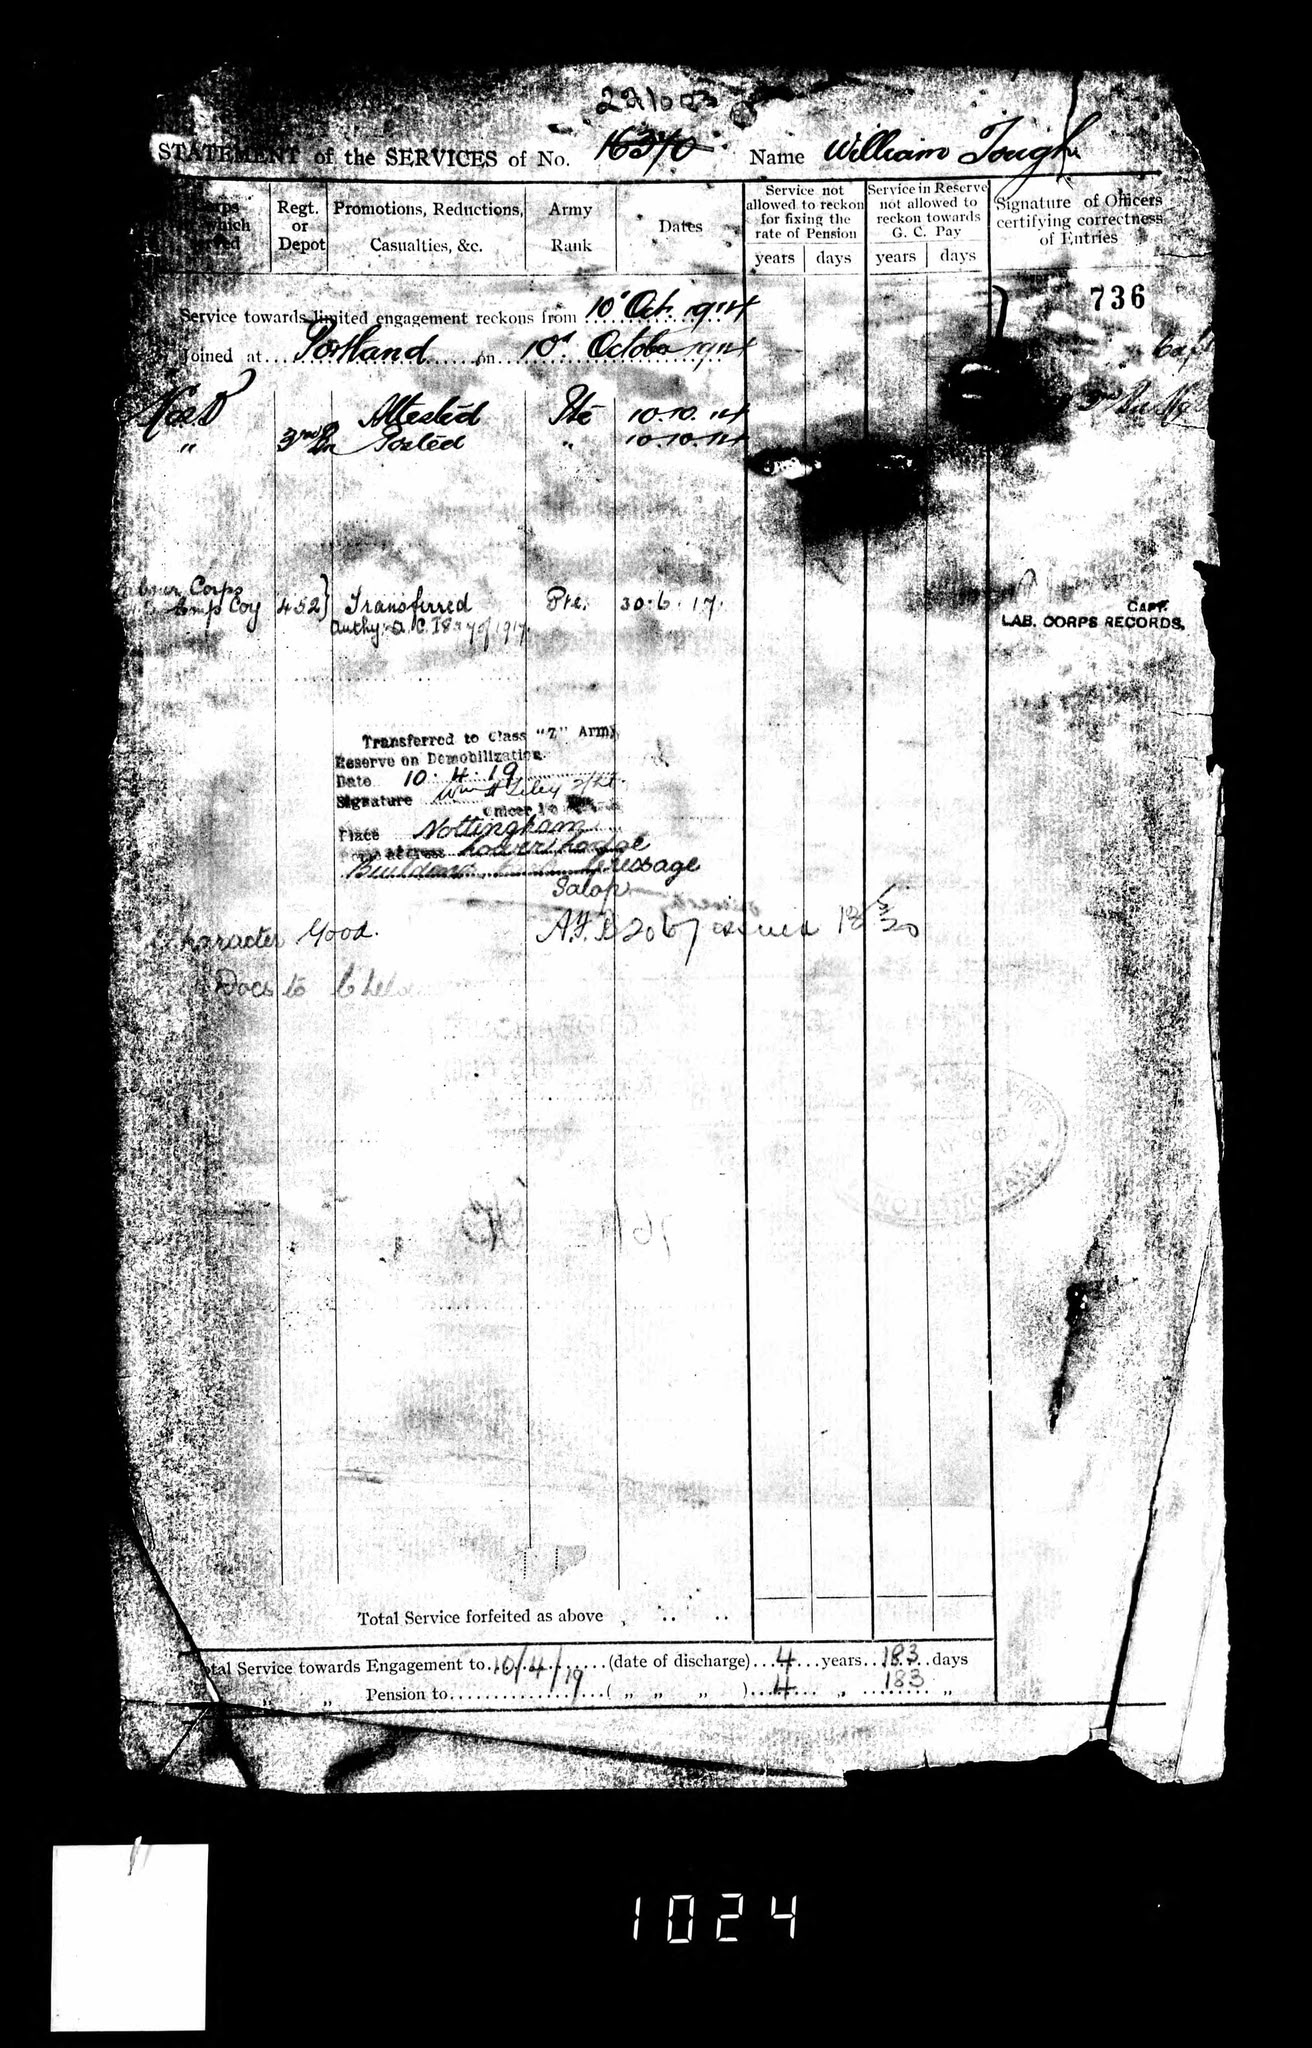 221003
STATEMENT of the SERVICES of No. 16370 Name William Tough
which
Regt. or Depot
Promotions, Reductions, Casualties, &c.
Army Rank
Dates
Service not allowed to reckon for fixing the rate of Pension
years days
Service in Reserve not allowed to reckon towards G. C. Pay
years days
Signature of Officers certifying correctness of Entries
736
Service towards limited engagement reckons from 10 Oct. 1914
Joined at Portland on 10 October 1914
Capt
Attested Pte 10.10.14
" 3rd Bn Posted " 10.10.14
Corps
Coy 452 } Transferred Pte. 30.6.17.
Authy: A.C.I. of 1917
CAPT.
LAB. CORPS RECORDS.
Transferred to Class "Z" Army
Reserve on Demobilization.
Date 10.4.19
Signature 2/Lt.
Officer i/c
Place Nottingham
address
Buildings Cressage
Salop
Character Good. A.F. B2067 issued
Docs to
Total Service forfeited as above
Total Service towards Engagement to 10/4/19 (date of discharge) 4 years 183 days
" " Pension to ( " " " ) 4 " 183 "
1024